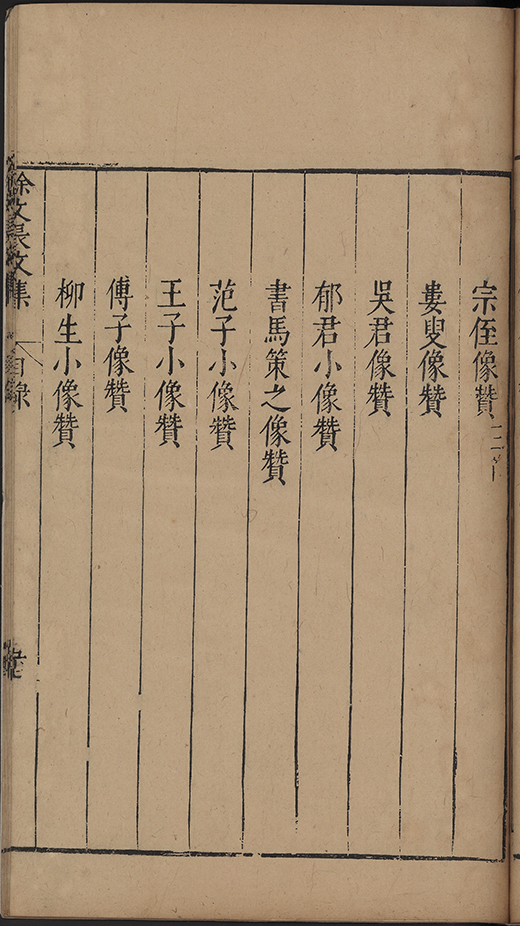 宗侄像贊二首
婁叟像贊
吳君像贊
郁君小像贊
書馬策之像贊
范子小像贊
王子小像贊
傅子像贊
柳生小像贊
徐文長文集 目錄